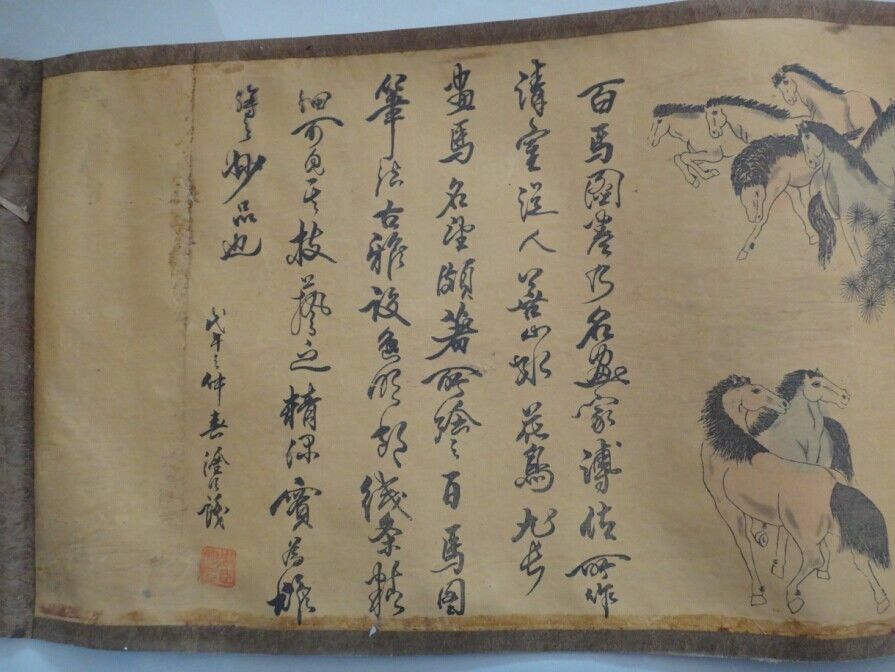 百馬圖卷乃名畫家溥佐所作
清室人善山水花鳥尤長
畫馬名望頗著所繪之百馬図
筆法古雅設色明朗綫条精
細可見其技藝之精深實為難
得之妙品也
戊午之仲春識